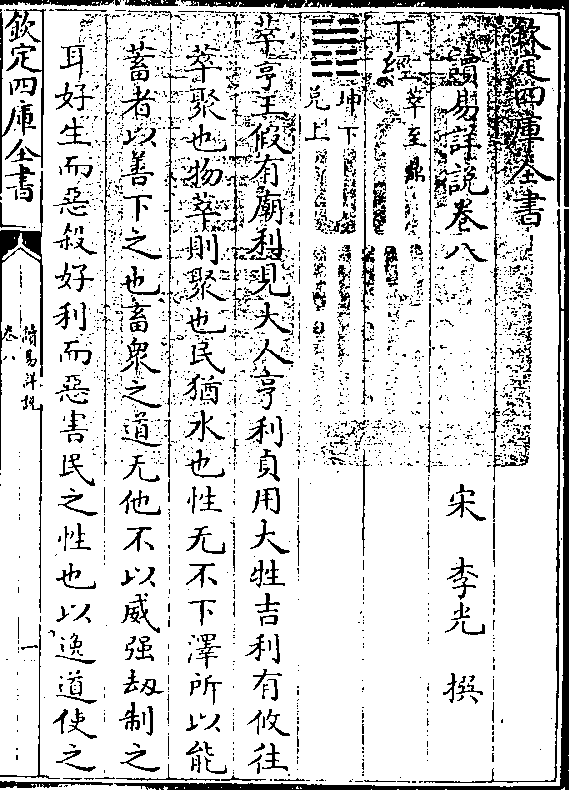 欽定四庫全書
讀易詳說卷八
宋 李光 撰
下經 萃至鼎
坤下
兌上
萃亨王假有廟利見大人亨利貞用大牲吉利有攸往
萃聚也物萃則聚也民猶水也性无不下澤所以能
蓄者以善下之也畜衆之道无他不以威强刼制之
耳好生而惡殺好利而惡害民之性也以逸道使之
欽定四庫全書
讀易詳說
卷八
一